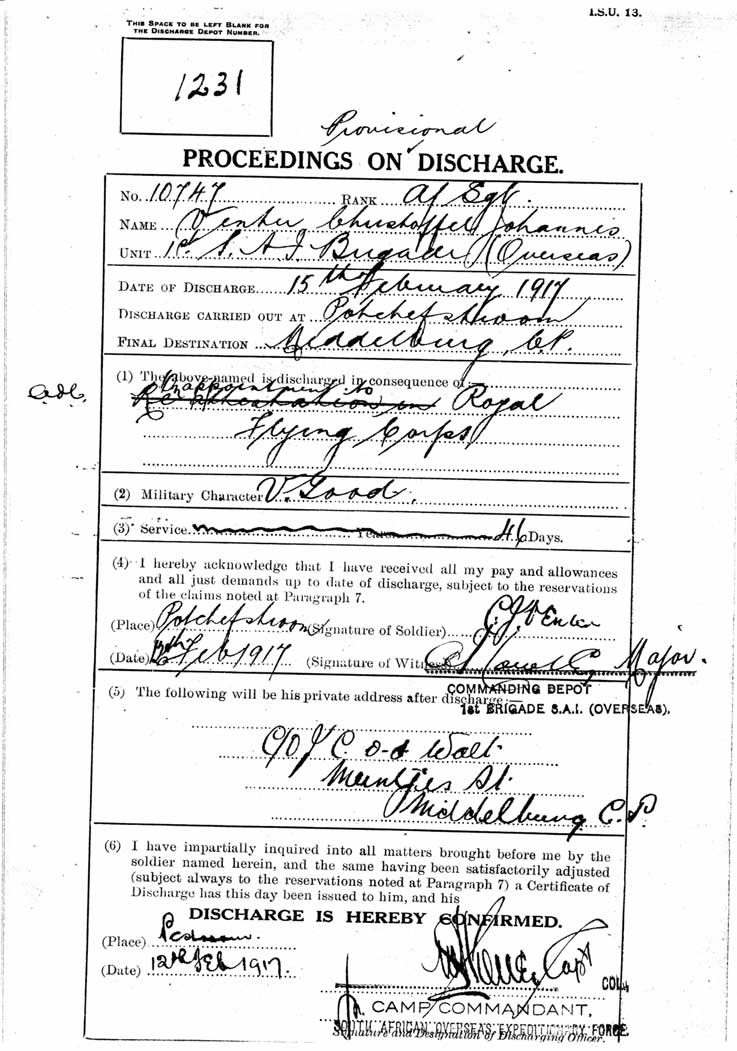 I.S.U. 13.
THIS SPACE TO BE LEFT BLANK FOR
THE DISCHARGE DEPOT NUMBER.
1231
Provisional
PROCEEDINGS ON DISCHARGE.
No. 10747 RANK A/ Sgt.
NAME Venter Christoffel Johannis
UNIT 1st S.A.I. Brigade (Overseas)
DATE OF DISCHARGE 15th February 1917
DISCHARGE CARRIED OUT AT Potchefstroom
FINAL DESTINATION Middelburg, C.P.
(1) The above-named is discharged in consequence of :—
appointment to
Re attestation in Royal
Flying Corps
(2) Military Character V. Good.
(3) Service Years 46 Days.
(4) I hereby acknowledge that I have received all my pay and allowances
and all just demands up to date of discharge, subject to the reservations
of the claims noted at Paragraph 7.
(Place) Potchefstroom (Signature of Soldier) C.J. Venter
(Date) 12th Feb 1917 (Signature of Witness) Major.
COMMANDING DEPOT
(5) The following will be his private address after discharge:—
1st BRIGADE S.A.I. (OVERSEAS).
C/O J C. v-d Walt
Meintjes St.
Middelburg C.P.
(6) I have impartially inquired into all matters brought before me by the
soldier named herein, and the same having been satisfactorily adjusted
(subject always to the reservations noted at Paragraph 7) a Certificate of
Discharge has this day been issued to him, and his
DISCHARGE IS HEREBY CONFIRMED.
(Place)
(Date) 12th Feb 1917. Capt
COL:
CAMP COMMANDANT,
SOUTH AFRICAN OVERSEAS EXPEDITIONARY FORCE.
Signature and Designation of Discharging Officer.